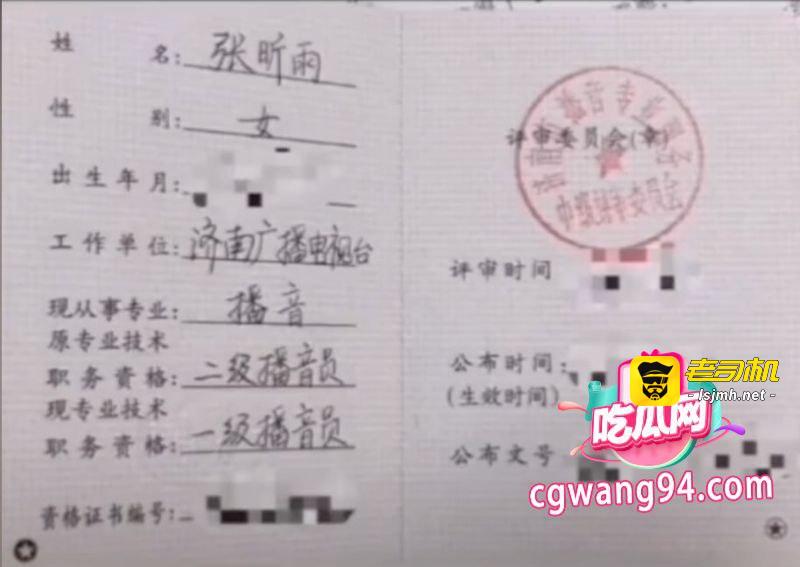 姓名：张昕雨
性别：女
出生年月：
工作单位：济南广播电视台
现从事专业：播音
原专业技术
职务资格：二级播音员
现专业技术
职务资格：一级播音员
资格证书编号：
评审委员会(章)
中级评审委员会
评审时间
公布时间：
(生效时间)
公布文号
老司机
- lsjmh.net -
吃瓜网
cgwang94.com